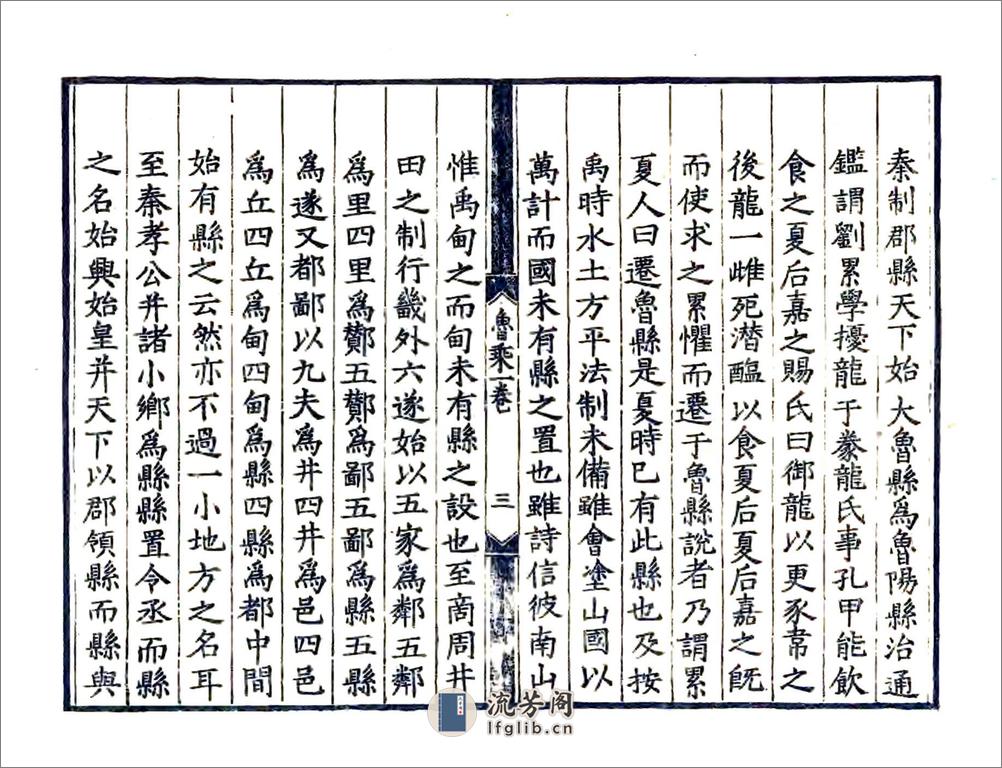 秦制郡縣天下始大魯縣爲魯陽縣治通
鑑謂劉累學擾龍于豢龍氏事孔甲能飲
食之夏后嘉之賜氏曰御龍以更豕韋之
後龍一雌死潜醢以食夏后夏后嘉之旣
而使求之累懼而遷于魯縣說者乃謂累
夏人曰遷魯縣是夏時已有此縣也及按
禹時水土方平法制未備雖會塗山國以
萬計而國未有縣之置也雖詩信彼南山
魯乘一卷
三
惟禹甸之而甸未有縣之設也至商周井
田之制行畿外六遂始以五家爲鄰五鄰
爲里四里爲酇五酇爲鄙五鄙爲縣五縣
爲遂又都鄙以九夫爲井四井爲邑四邑
爲丘四丘爲甸四甸爲縣四縣爲都中間
始有縣之云然亦不過一小地方之名耳
至秦孝公并諸小鄉爲縣縣置令丞而縣
之名始興始皇并天下以郡領縣而縣與
流芳阁
lfglib.cn